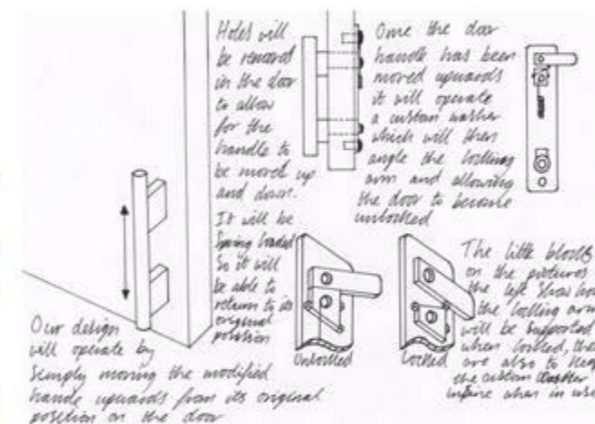 Holes will
be removed
in the door
to allow
for the
handle to
be moved up
and down.
It will be
Spring loaded
So it will
be able to
return to its
original
position
Once the door
handle has been
moved upwards
it will operate
a custom washer
which will then
angle the locking
arm and allowing
the door to become
unlocked
Our design
will operate by
Simply moving the modified
handle upwards from its original
position on the door
Unlocked
Locked
The little blocks
on the pictures
the left Show how
the locking arm
will be supported
when locked, the
are also to keep
the custom washer
inline when in use